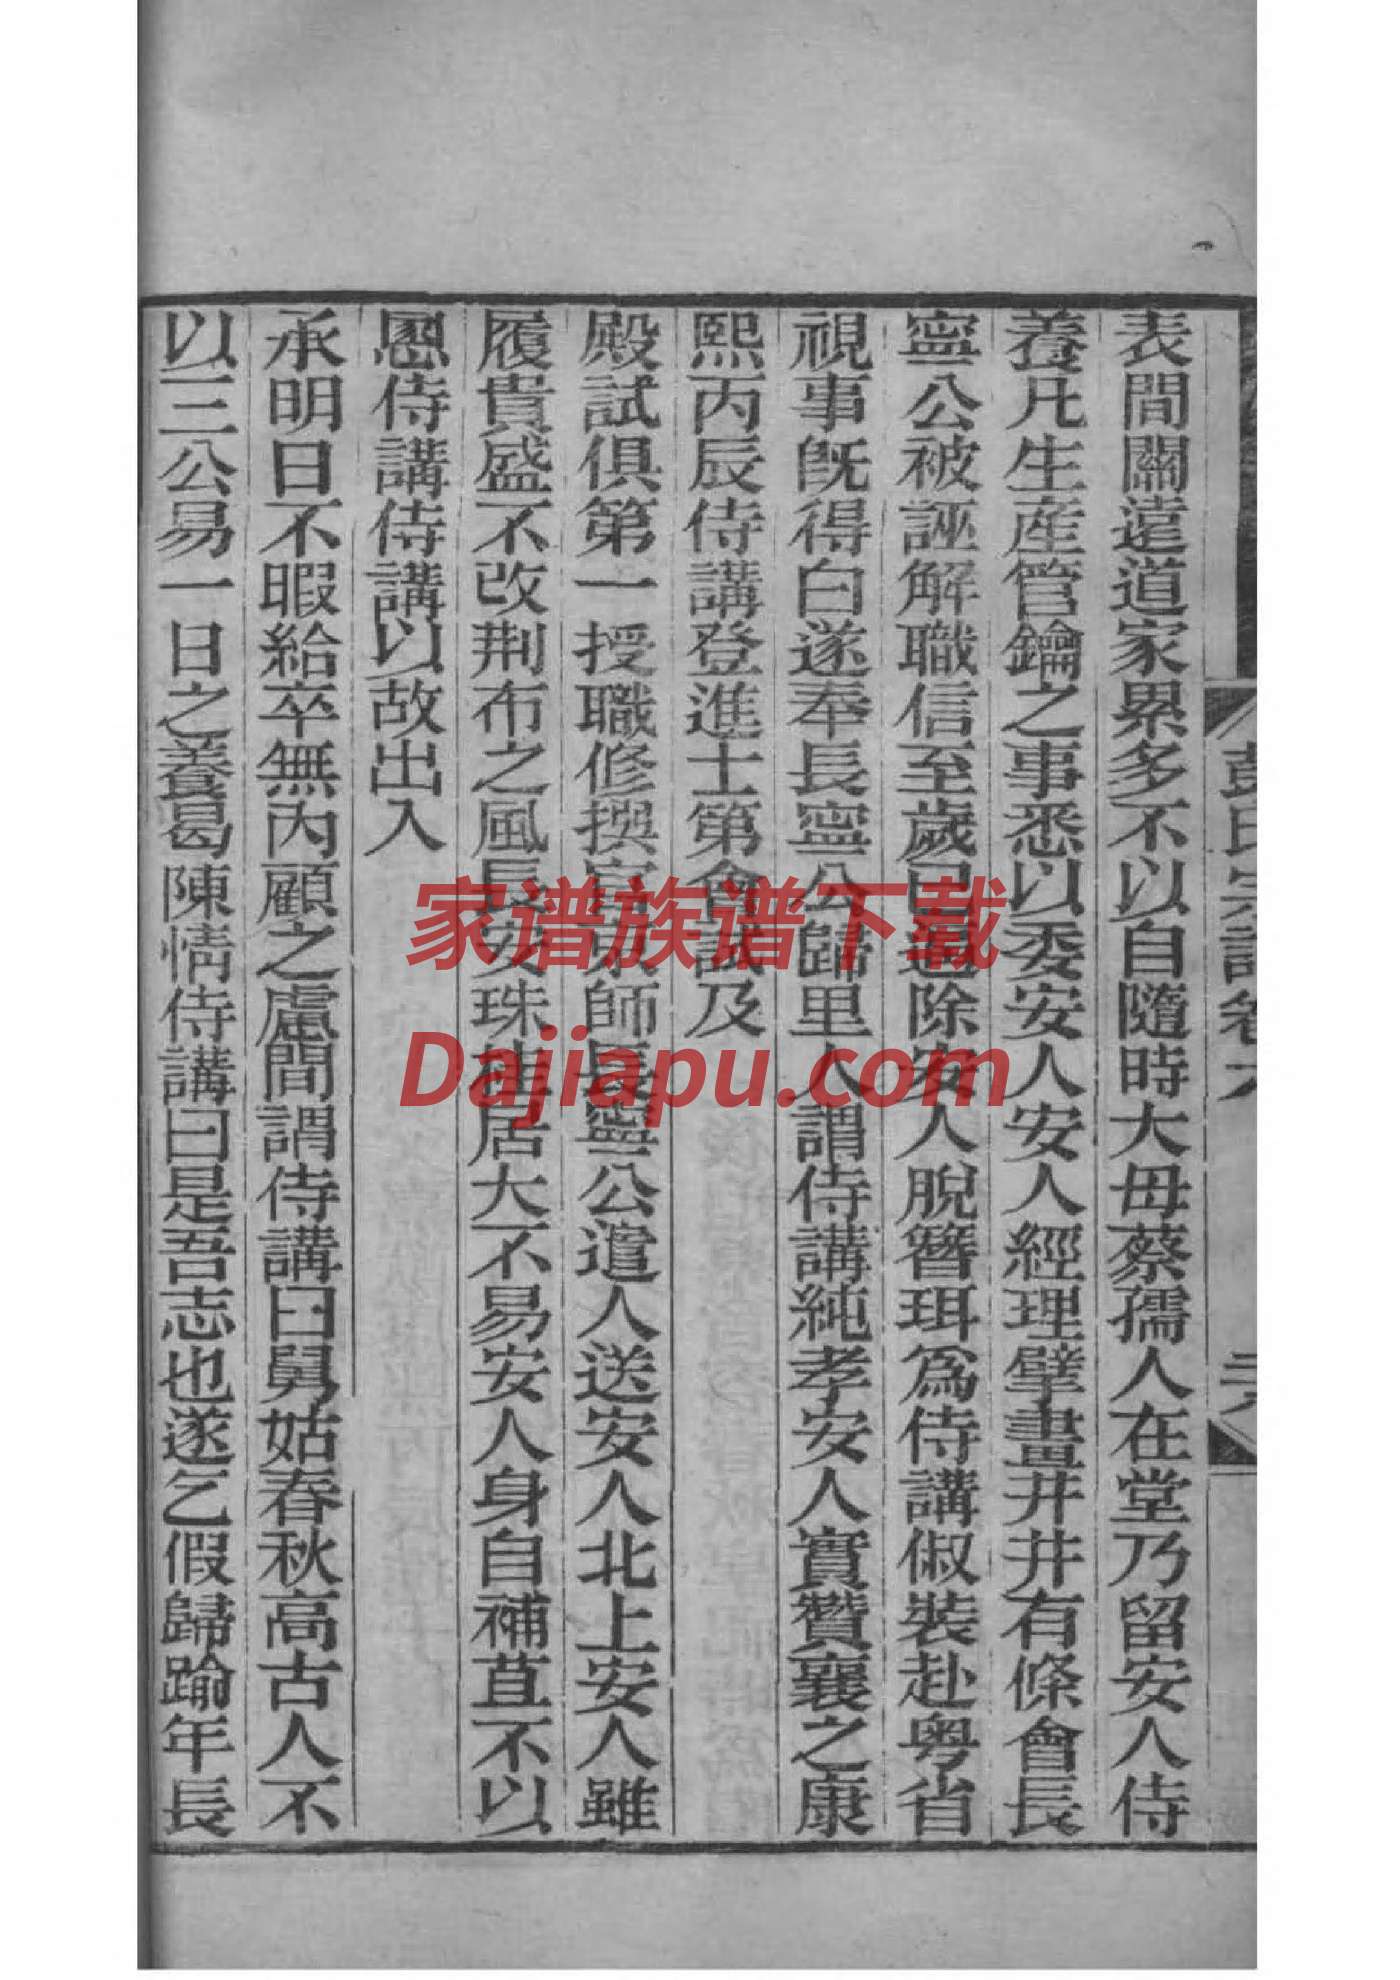 表間關遠道家累多不以自隨時大母蔡孺人在堂乃留安人侍
養凡生産管鑰之事悉以委安人安人經理擘畫井井有條會長
寧公被誣解職信至歲日適除安人脫簪珥爲侍講俶裝赴粤省
視事旣得白遂奉長寧公歸里人謂侍講純孝安人實贊襄之康
熙丙辰侍講登進士第會試及
殿試俱第一授職修撰官京師長寧公遣人送安人北上安人雖
履貴盛不改荆布之風長安珠桂居大不易安人身自補苴不以
恩侍講侍講以故出入
承明日不暇給卒無內顧之慮間謂侍講曰舅姑春秋高古人不
以三公易一日之養曷陳情侍講曰是吾志也遂乞假歸踰年長
彭氏宗譜卷六
家谱族谱下载
Dajiapu.com